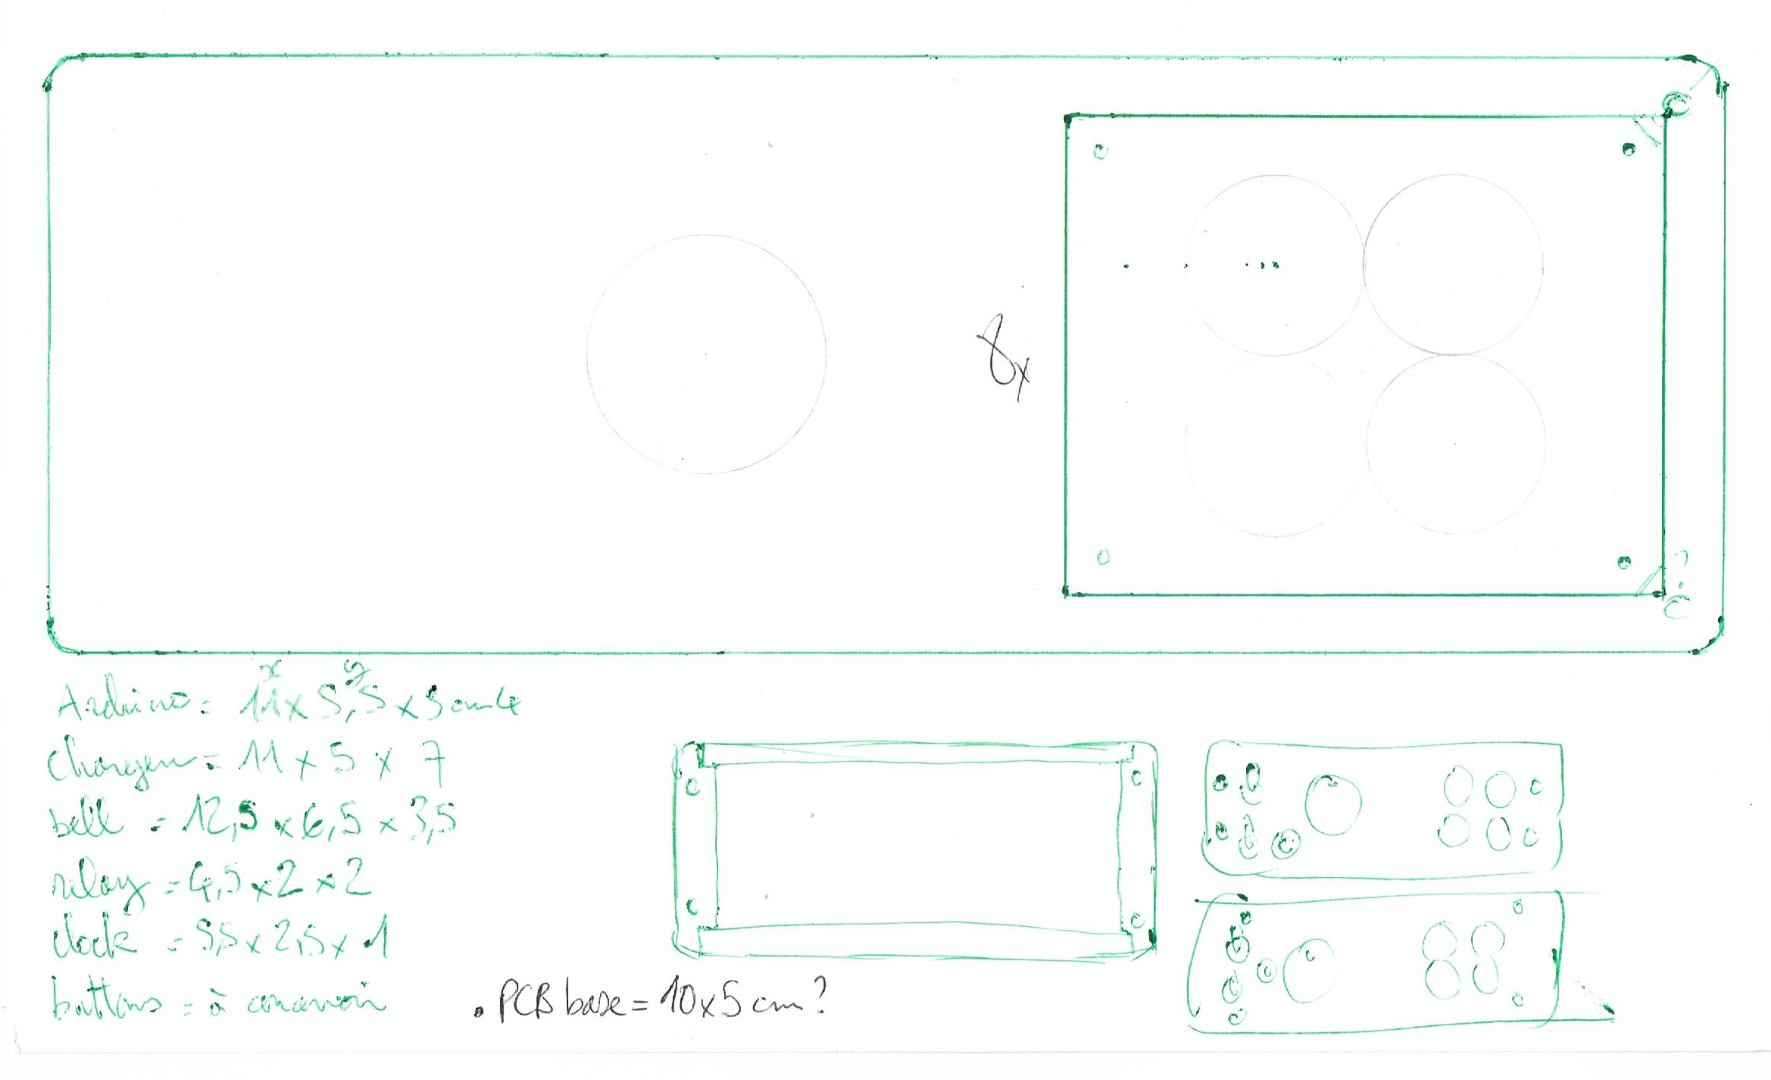 8x
x y
Arduino = 11 x 5,5 x 3 cm
chargeur = 11 x 5 x 7
bell = 12,5 x 6,5 x 3,5
relay = 4,5 x 2 x 2
clock = 5,5 x 2,5 x 1
buttons = à concevoir
. PCB base = 10 x 5 cm ?